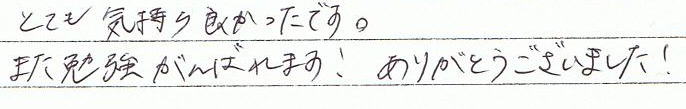 とても気持ち良かったです。
また勉強がんばれます! ありがとうございました!